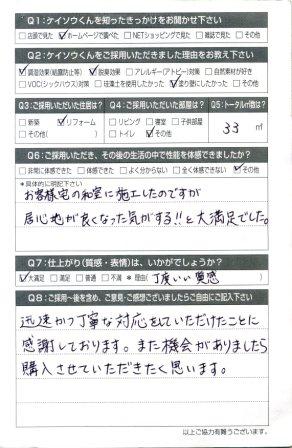 Q1：ケイソウくんを知ったきっかけをお聞かせ下さい
□店頭で見た ☑ホームページで調べた □NETショッピングで見た □雑誌で見た □その他
Q2：ケイソウくんをご採用いただきました理由をお教え下さい
☑調湿効果(結露防止等) ☑脱臭効果 □アレルギー(アトピー)対策 □自然素材が好き
□VOC(シックハウス)対策 □珪藻土を使用したかった ☑塗り壁にしたかった □その他
Q3：ご採用いただいた住居は？ Q4：ご採用いただいた部屋は？ Q5：トータル㎡数は？
□新築 ☑リフォーム □リビング □寝室 □子供部屋 33 ㎡
□その他( ) □トイレ ☑その他
Q6：ご採用いただき、その後の生活の中で性能を体感できましたか？
□非常に体感できた □体感できた □よく分からない □全く体感できない ☑その他
*具体的に明記下さい
お客様宅の和室に施工したのですが
居心地が良くなった気がする!!と大満足でした。
Q7：仕上がり(質感・表情)は、いかがでしょうか？
☑大満足 □満足 □普通 □不満 *理由( 丁度いい質感 )
Q8：ご採用～後を含め、ご意見・ご感想ございましたらご自由にご記入下さい
迅速かつ丁寧な対応をしていただけたことに
感謝しております。また機会がありましたら
購入させていただきたく思います。
以上ご協力有難うございます。